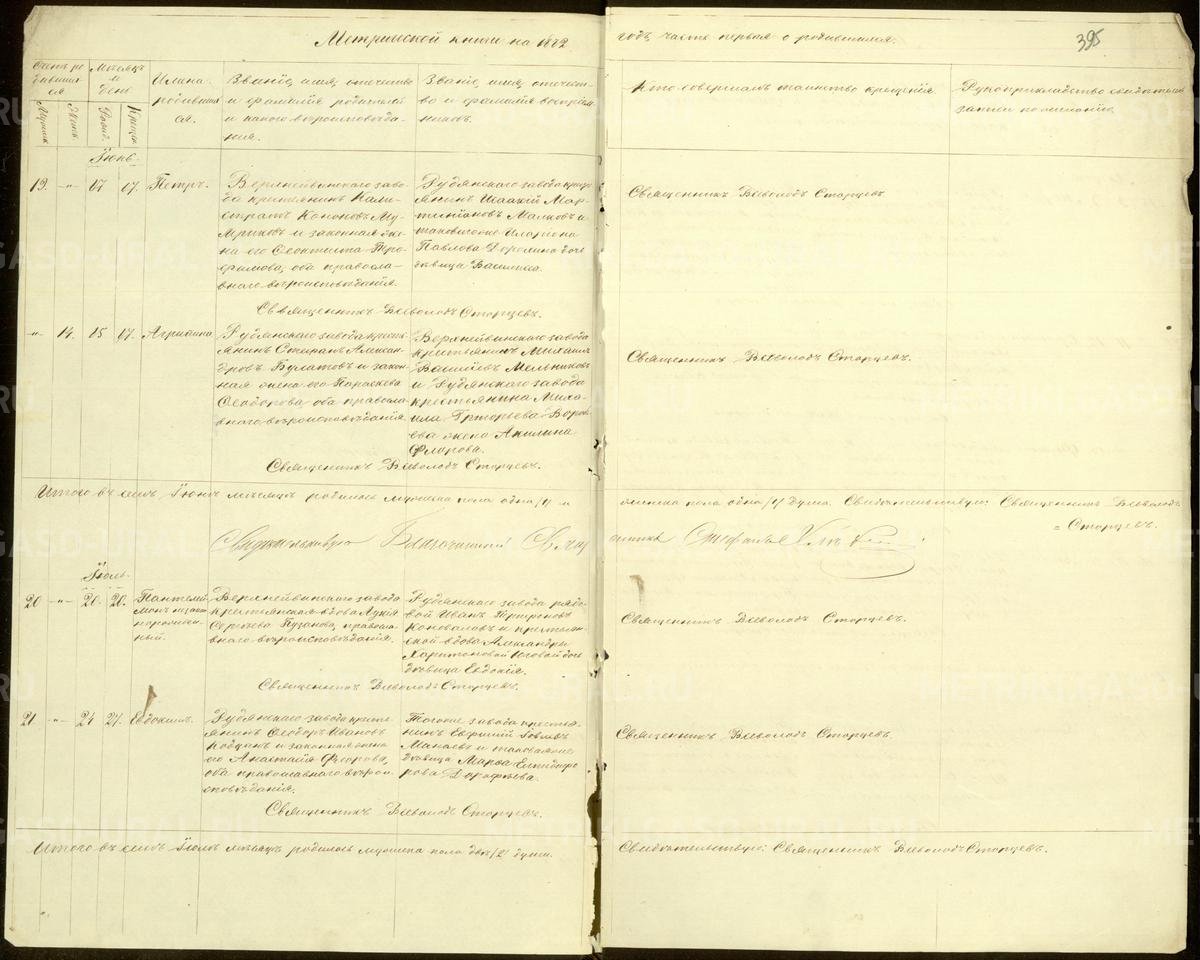 Метрической книги на 1882 годъ, часть первая о родившихся.
395
Счетъ родившихся
Мѣсяцъ и день
Имена родившихся.
Званіе, имя, отчество и фамилія родителей и какого вѣроисповѣданія.
Званіе, имя, отчество и фамилія воспріемниковъ.
Кто совершалъ таинство крещенія
Рукоприкладство свидѣтелей записи по желанію
Мужск.
Женск.
Рожд.
Крещ.
Іюнь.
19. -"- 17 17. Петръ.
Верхнейвинскаго заво-
да крестьянинъ Кали-
стратъ Кононовъ
и законная же-
на его Ѳеоктиста Тро-
фимова, оба православ-
наго вѣроисповѣданія.
Рудянскаго завода крестья-
янинъ Исаакій Мар-
тиніановъ Малковъ и
таковаго же Иларіона
Павлова дочь
дѣвица Васса.
Священникъ Всеволодъ Старцевъ
Священникъ Всеволодъ Старцевъ.
-"- 14. 15 17. Агрипина
Рудянскаго завода кресть-
янинъ Стефанъ Алексан-
дровъ Булатовъ и закон-
ная жена его Параскева
Ѳеодорова оба православ-
наго вѣроисповѣданія.
Верхнейвинскаго завода
крестьянинъ Михаилъ
Васильевъ Мельниковъ
и Рудянскаго завода
крестьянина Миха-
ила Григорьева
жена Акилина
Флорова.
Священникъ Всеволодъ Старцевъ.
Священникъ Всеволодъ Старцевъ.
Итого въ семъ Іюнѣ мѣсяцѣ родилось мужеска пола одна /1/ и
женска пола одна /1/ душа. Свидѣтельствую: Священникъ Всеволодъ
= Старцевъ.
Свидѣтельствую Благочинный Священникъ Стефанъ
Іюль.
20 -"- 20. 20. Пантелеи-
монъ незакон-
норожден-
ный.
Верхнейвинскаго завода
крестьянская вдова Лукія
Сергѣева Пузанова, православ-
наго вѣроисповѣданія.
Рудянскаго завода рядо-
вой Иванъ Трифоновъ
Коноваловъ и крестьян-
ской вдовы Александры
Харитоновой дочь
дѣвица Евдокія.
Священникъ Всеволодъ Старцевъ.
Священникъ Всеволодъ Старцевъ.
21. -"- 24 27. Евдокимъ.
Рудянскаго завода кресть-
янинъ Ѳеодоръ Ивановъ
и законная жена
его Анастасія
оба православнаго вѣрои-
сповѣданія.
Тогоже завода кресть-
нинъ Евфимій
Манаевъ и таковая же
дѣвица Марѳа Елпидифо-
рова Дорофѣева.
Священникъ Всеволодъ Старцевъ.
Священникъ Всеволодъ Старцевъ.
Итого въ семъ Іюлѣ мѣсяцѣ родилось мужеска пола двѣ /2/ души.
Свидѣтельствую: Священникъ Всеволодъ Старцевъ.
METRIKI.GASO-URAL.RU